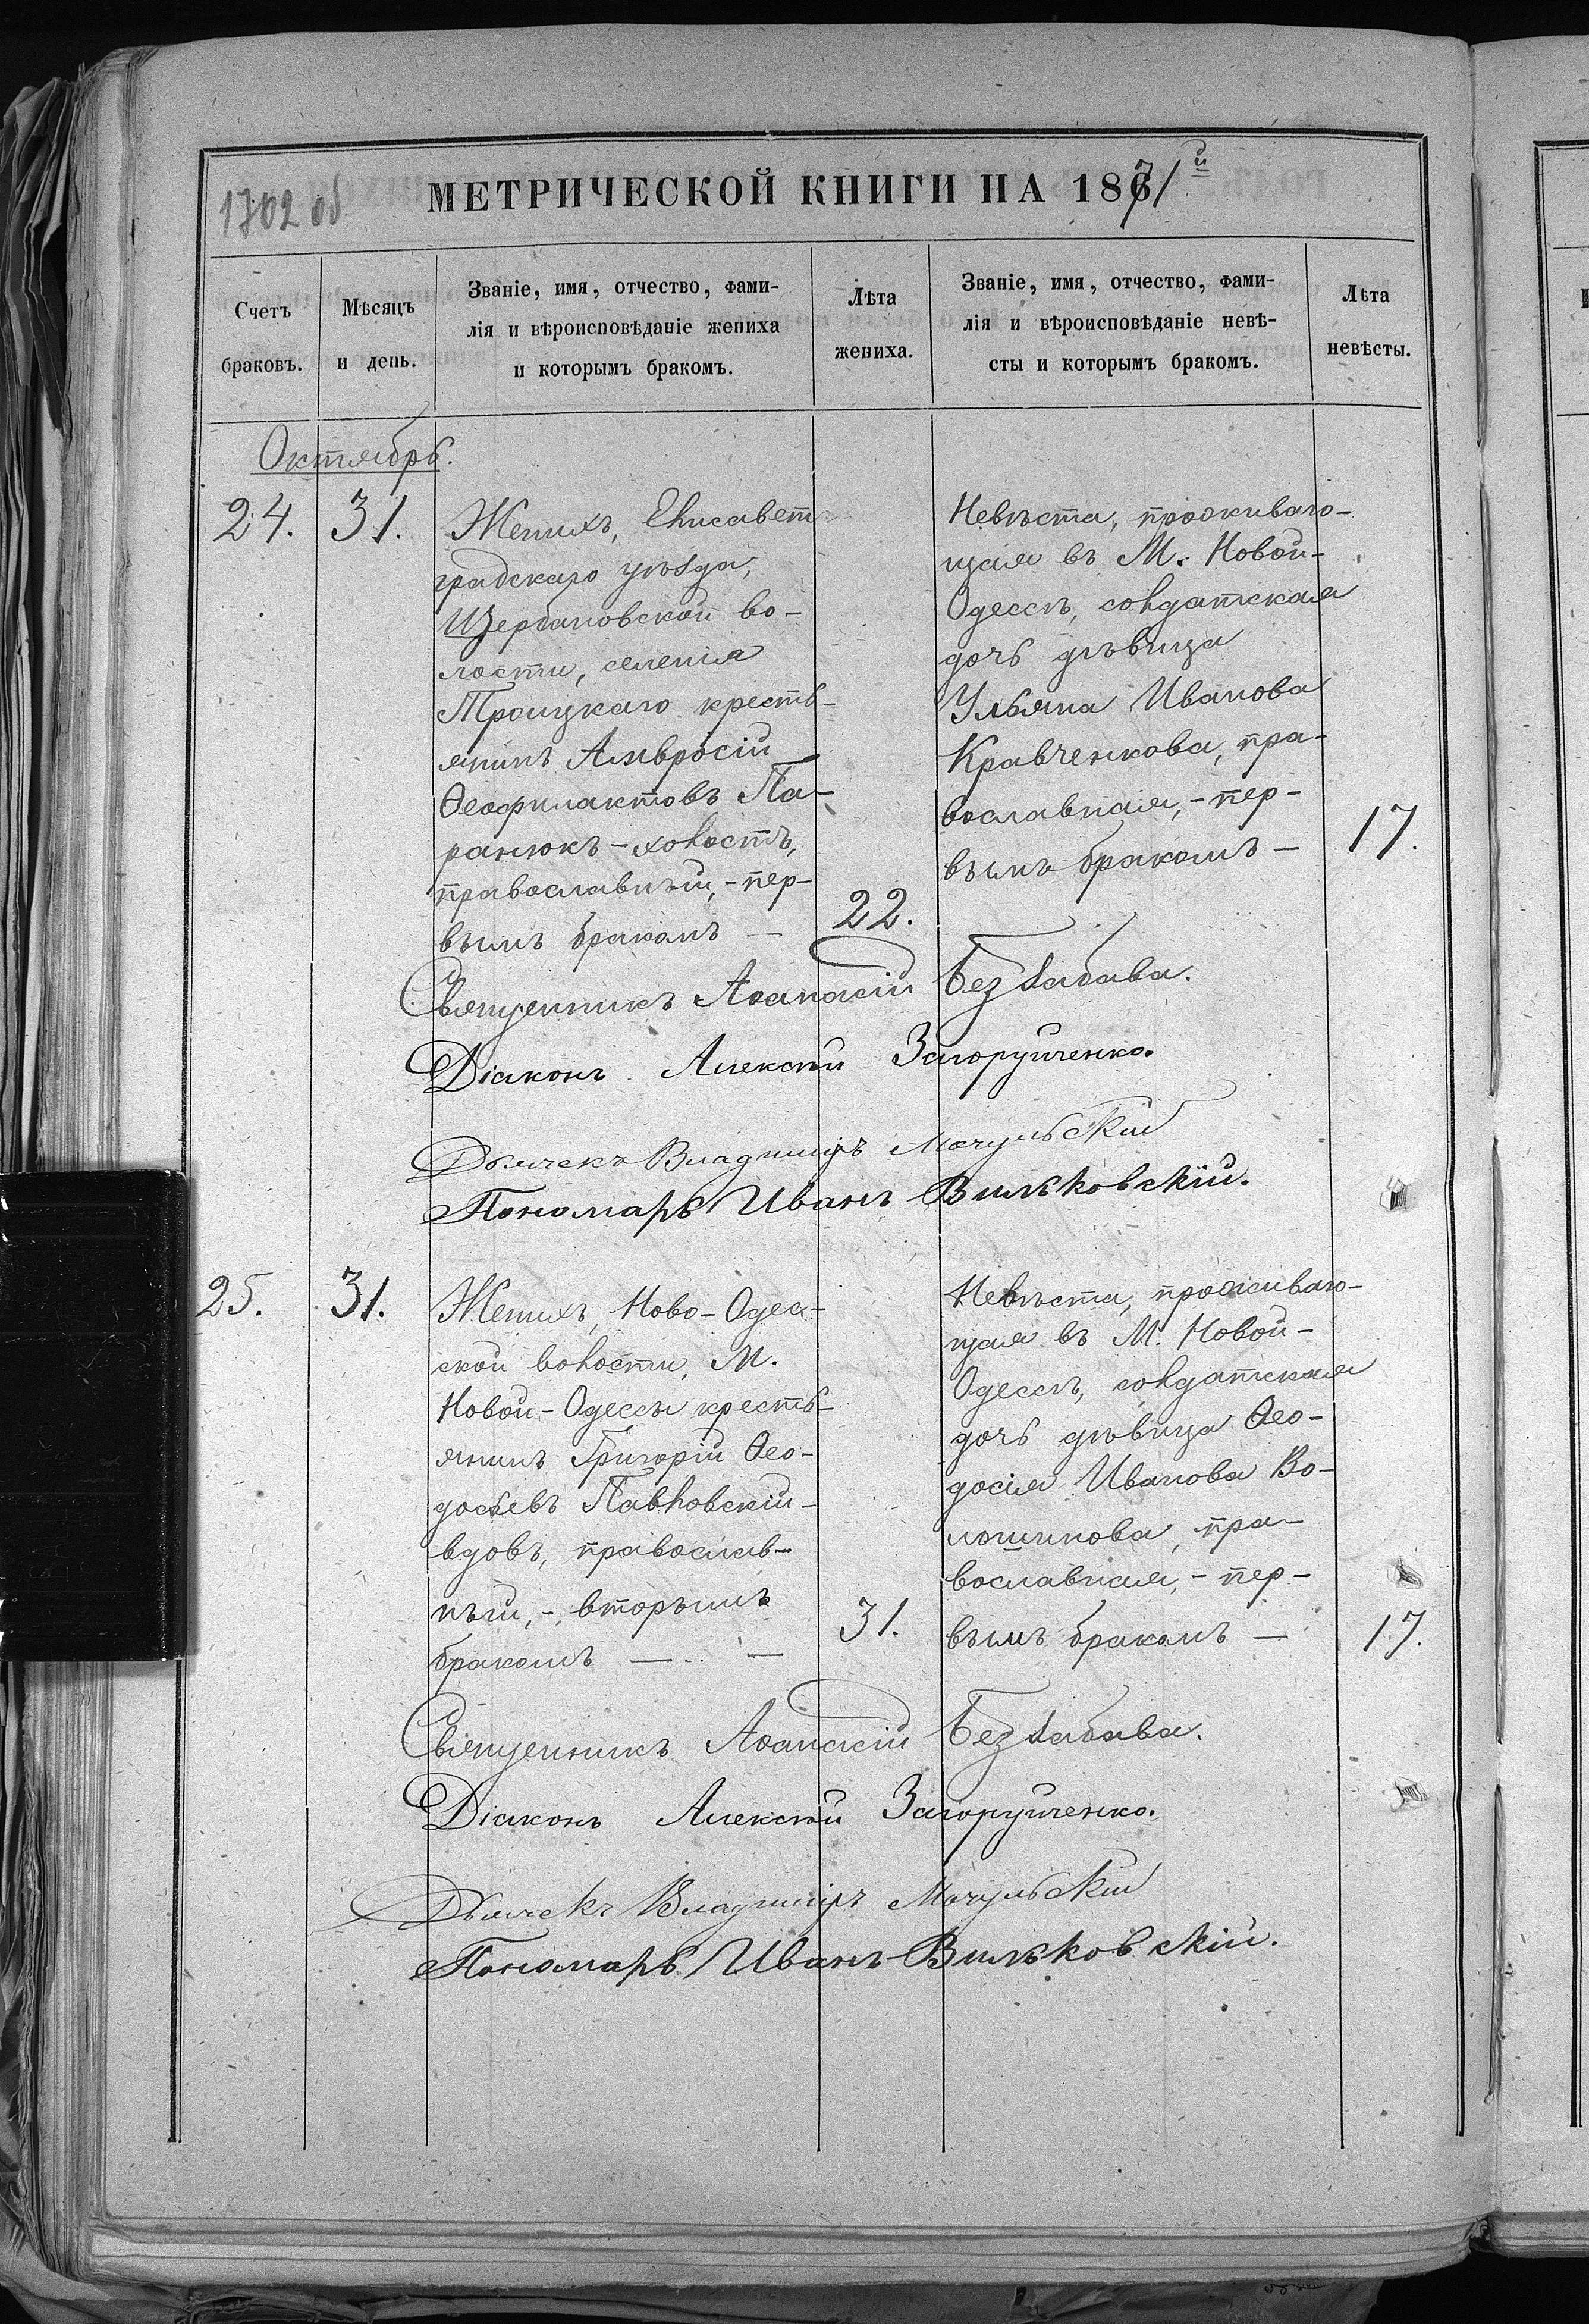 1702 об
МЕТРИЧЕСКОЙ КНИГИ НА 1871й
Счетъ
браковъ.
Мѣсяцъ
и день.
Званіе, имя, отчество, фами-
лія и вѣроисповѣданіе жениха
и которымъ бракомъ.
Лѣта
жениха.
Званіе, имя, отчество, фами-
лія и вѣроисповѣданіе невѣ-
сты и которымъ бракомъ.
Лѣта
невѣсты.
Октябрь.
24.
31.
Женихъ, Елисавет
градскаго уѣзда,
Щербановской во-
лости, селенія
Троицкаго кресть-
янинъ Амвросій
Ѳеофилактовъ Па-
ранюкъ - холостъ,
православный, - пер-
вымъ бракомъ —
22.
Невѣста, проживаю-
щая въ М. Новой-
Одессѣ, солдатская
дочь дѣвица
Ульяна Иванова
Кравченкова, пра-
вославная, - пер-
вымъ бракомъ —
17.
Священникъ Аѳанасій Беззабава.
Діаконъ Алексѣй Загоруйченко.
Дьячекъ Владиміръ Мачульскій
Пономарь Иванъ Вильковскій.
25.
31.
Женихъ, Ново-Одес-
ской волости, М.
Новой-Одессы кресть-
янинъ Григорій Ѳео-
досьевъ Павловскій -
вдовъ, православ-
ный, - вторымъ
бракомъ — —
31.
Невѣста, проживаю-
щая въ М. Новой-
Одессѣ, солдатская
дочь дѣвица Ѳео-
досія Иванова Во-
лошинова, пра-
вославная, - пер-
вымъ бракомъ —
17.
Священникъ Аѳанасій Беззабава.
Діаконъ Алексѣй Загоруйченко.
Дьячекъ Владиміръ Мачульскій
Пономарь Иванъ Вильковскій.